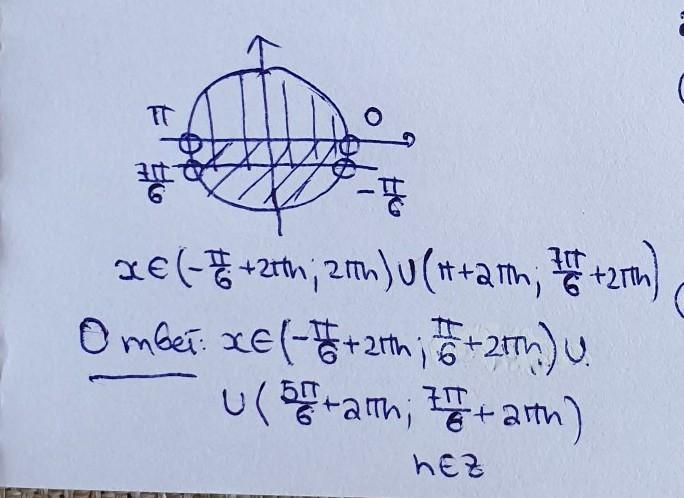 π 0
7π/6 -π/6
x∈(-π/6+2πn; 2πn)∪(π+2πn; 7π/6+2πn)
Ответ: x∈(-π/6+2πn; π/6+2πn)∪
∪(5π/6+2πn; 7π/6+2πn)
n∈z